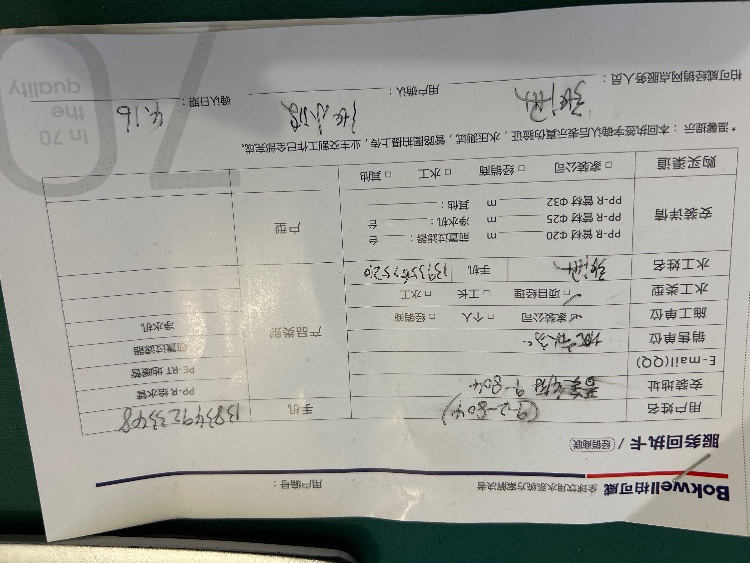 Bokwell柏可威 全球饮用水系统方案解决者 用户编号：
服务回执卡 / 经销商联
用户姓名 (9-2-804) 手机 13834923348
安装地址 9-804 PP-R 给水管
E-mail(QQ) PE-RT 地暖管
销售单位 产品类别 前置过滤器
施工单位 ✓家装公司 □ 个人 □ 经销商 净水机
水工类型 ✓项目经理 □ 工长 □ 水工
水工姓名 手机
安装详情 PP-R 管材 Φ20 m 前置过滤器： 台 户型
PP-R 管材 Φ25 m 净水机： 台
PP-R 管材 Φ32 m 其他：
购买渠道 □ 家装公司 □ 经销商 □ 水工 □ 其他
*温馨提示：本回执签字确认后表示真伪验证，水压测试，管路图拍摄上传，业主交割工作已全部完成。
柏可威经销网点服务人员： 用户确认： 确认日期： 4.16
70
In 70
the
quality